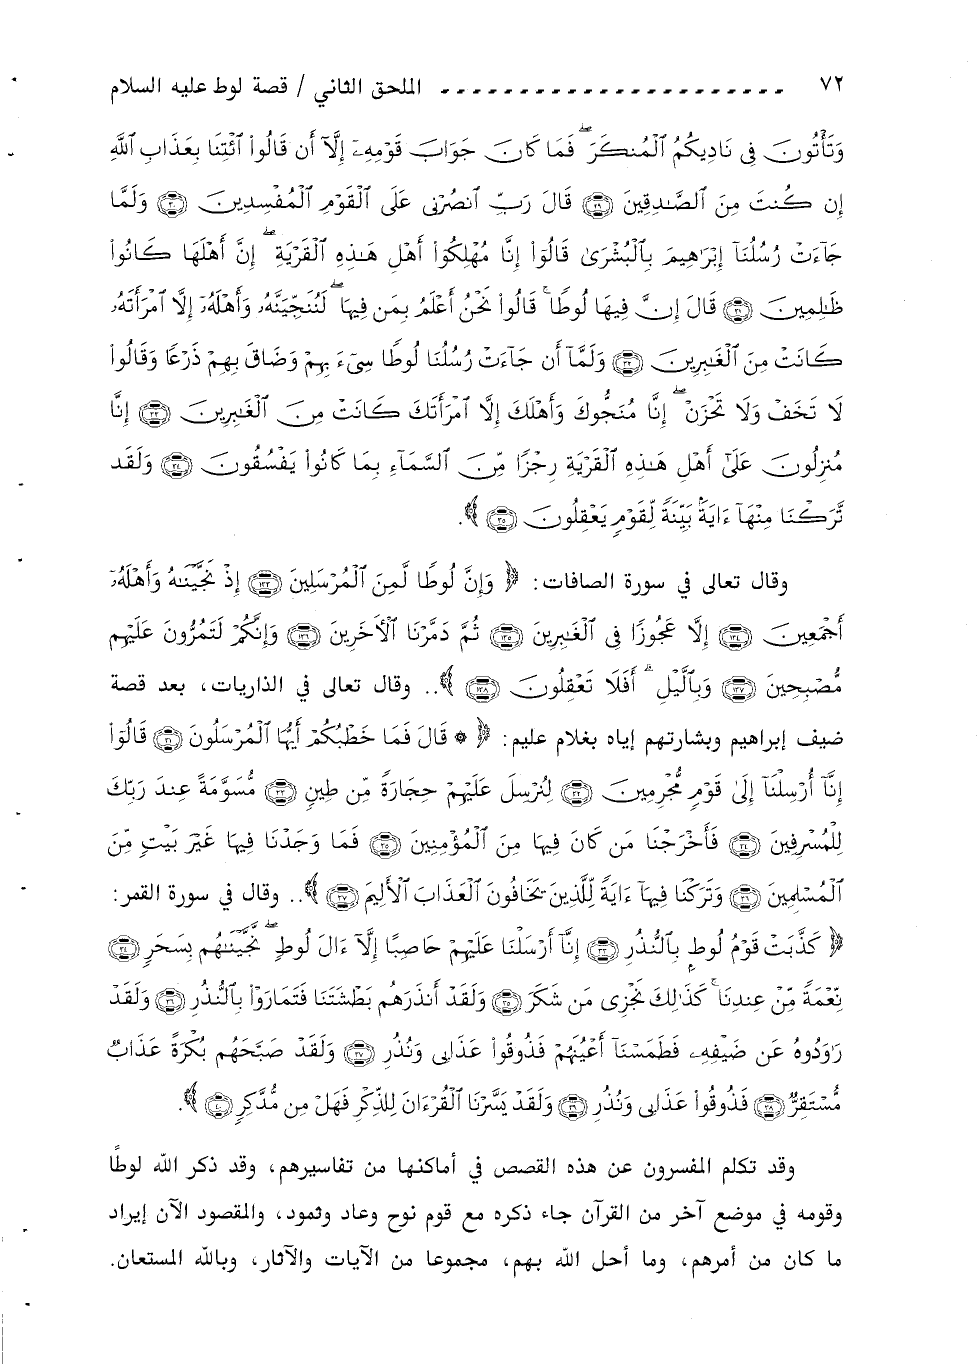 ٧٢ ـ ـ ـ ـ ـ ـ ـ ـ ـ ـ ـ ـ ـ ـ ـ ـ ـ ـ ـ ـ ـ ـ ـ الملحق الثاني / قصة لوط عليه السلام
وَتَأْتُونَ فِى نَادِيكُمُ ٱلْمُنكَرَ ۖ فَمَا كَانَ جَوَابَ قَوْمِهِۦٓ إِلَّآ أَن قَالُوا۟ ٱئْتِنَا بِعَذَابِ ٱللَّهِ
إِن كُنتَ مِنَ ٱلصَّـٰدِقِينَ ﴿٢٩﴾ قَالَ رَبِّ ٱنصُرْنِى عَلَى ٱلْقَوْمِ ٱلْمُفْسِدِينَ ﴿٣٠﴾ وَلَمَّا
جَآءَتْ رُسُلُنَآ إِبْرَٰهِيمَ بِٱلْبُشْرَىٰ قَالُوٓا۟ إِنَّا مُهْلِكُوٓا۟ أَهْلِ هَـٰذِهِ ٱلْقَرْيَةِ ۖ إِنَّ أَهْلَهَا كَانُوا۟
ظَـٰلِمِينَ ﴿٣١﴾ قَالَ إِنَّ فِيهَا لُوطًا ۚ قَالُوا۟ نَحْنُ أَعْلَمُ بِمَن فِيهَا ۖ لَنُنَجِّيَنَّهُۥ وَأَهْلَهُۥٓ إِلَّا ٱمْرَأَتَهُۥ
كَانَتْ مِنَ ٱلْغَـٰبِرِينَ ﴿٣٢﴾ وَلَمَّآ أَن جَآءَتْ رُسُلُنَا لُوطًا سِىٓءَ بِهِمْ وَضَاقَ بِهِمْ ذَرْعًا وَقَالُوا۟
لَا تَخَفْ وَلَا تَحْزَنْ ۖ إِنَّا مُنَجُّوكَ وَأَهْلَكَ إِلَّا ٱمْرَأَتَكَ كَانَتْ مِنَ ٱلْغَـٰبِرِينَ ﴿٣٣﴾ إِنَّا
مُنزِلُونَ عَلَىٰٓ أَهْلِ هَـٰذِهِ ٱلْقَرْيَةِ رِجْزًا مِّنَ ٱلسَّمَآءِ بِمَا كَانُوا۟ يَفْسُقُونَ ﴿٣٤﴾ وَلَقَد
تَّرَكْنَا مِنْهَآ ءَايَةًۢ بَيِّنَةً لِّقَوْمٍ يَعْقِلُونَ ﴿٣٥﴾ ﴾.
وقال تعالى في سورة الصافات: ﴿ وَإِنَّ لُوطًا لَّمِنَ ٱلْمُرْسَلِينَ ﴿١٣٣﴾ إِذْ نَجَّيْنَـٰهُ وَأَهْلَهُۥٓ
أَجْمَعِينَ ﴿١٣٤﴾ إِلَّا عَجُوزًا فِى ٱلْغَـٰبِرِينَ ﴿١٣٥﴾ ثُمَّ دَمَّرْنَا ٱلْـَٔاخَرِينَ ﴿١٣٦﴾ وَإِنَّكُمْ لَتَمُرُّونَ عَلَيْهِم
مُّصْبِحِينَ ﴿١٣٧﴾ وَبِٱلَّيْلِ ۗ أَفَلَا تَعْقِلُونَ ﴿١٣٨﴾ ﴾.. وقال تعالى في الذاريات، بعد قصة
ضيف إبراهيم وبشارتهم إياه بغلام عليم: ﴿ * قَالَ فَمَا خَطْبُكُمْ أَيُّهَا ٱلْمُرْسَلُونَ ﴿٣١﴾ قَالُوٓا۟
إِنَّآ أُرْسِلْنَآ إِلَىٰ قَوْمٍ مُّجْرِمِينَ ﴿٣٢﴾ لِنُرْسِلَ عَلَيْهِمْ حِجَارَةً مِّن طِينٍ ﴿٣٣﴾ مُّسَوَّمَةً عِندَ رَبِّكَ
لِلْمُسْرِفِينَ ﴿٣٤﴾ فَأَخْرَجْنَا مَن كَانَ فِيهَا مِنَ ٱلْمُؤْمِنِينَ ﴿٣٥﴾ فَمَا وَجَدْنَا فِيهَا غَيْرَ بَيْتٍ مِّنَ
ٱلْمُسْلِمِينَ ﴿٣٦﴾ وَتَرَكْنَا فِيهَآ ءَايَةً لِّلَّذِينَ يَخَافُونَ ٱلْعَذَابَ ٱلْأَلِيمَ ﴿٣٧﴾ ﴾.. وقال في سورة القمر:
﴿ كَذَّبَتْ قَوْمُ لُوطٍۭ بِٱلنُّذُرِ ﴿٣٣﴾ إِنَّآ أَرْسَلْنَا عَلَيْهِمْ حَاصِبًا إِلَّآ ءَالَ لُوطٍ ۖ نَّجَّيْنَـٰهُم بِسَحَرٍ ﴿٣٤﴾
نِّعْمَةً مِّنْ عِندِنَا ۚ كَذَٰلِكَ نَجْزِى مَن شَكَرَ ﴿٣٥﴾ وَلَقَدْ أَنذَرَهُم بَطْشَتَنَا فَتَمَارَوْا۟ بِٱلنُّذُرِ ﴿٣٦﴾ وَلَقَدْ
رَٰوَدُوهُ عَن ضَيْفِهِۦ فَطَمَسْنَآ أَعْيُنَهُمْ فَذُوقُوا۟ عَذَابِى وَنُذُرِ ﴿٣٧﴾ وَلَقَدْ صَبَّحَهُم بُكْرَةً عَذَابٌ
مُّسْتَقِرٌّ ﴿٣٨﴾ فَذُوقُوا۟ عَذَابِى وَنُذُرِ ﴿٣٩﴾ وَلَقَدْ يَسَّرْنَا ٱلْقُرْءَانَ لِلذِّكْرِ فَهَلْ مِن مُّدَّكِرٍ ﴿٤٠﴾ ﴾.
وقد تكلم المفسرون عن هذه القصص في أماكنها من تفاسيرهم، وقد ذكر الله لوطًا
وقومه في موضع آخر من القرآن جاء ذكره مع قوم نوح وعاد وثمود، والمقصود الآن إيراد
ما كان من أمرهم، وما أحل الله بهم، مجموعا من الآيات والآثار، وبالله المستعان.